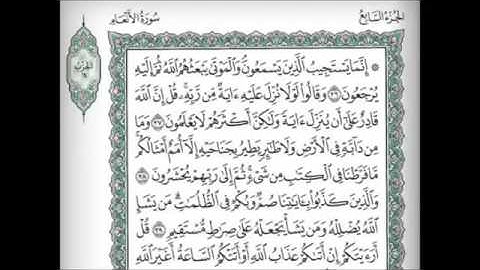 الجزء السابع
سورة الأنعام
۞ إِنَّمَا يَسْتَجِيبُ ٱلَّذِينَ يَسْمَعُونَۘ وَٱلْمَوْتَىٰ يَبْعَثُهُمُ ٱللَّهُ ثُمَّ إِلَيْهِ
يُرْجَعُونَ ٣٦ وَقَالُوا۟ لَوْلَا نُزِّلَ عَلَيْهِ ءَايَةٌ مِّن رَّبِّهِۦۚ قُلْ إِنَّ ٱللَّهَ
قَادِرٌ عَلَىٰٓ أَن يُنَزِّلَ ءَايَةً وَلَٰكِنَّ أَكْثَرَهُمْ لَا يَعْلَمُونَ ٣٧ وَمَا
مِن دَآبَّةٍ فِى ٱلْأَرْضِ وَلَا طَٰٓئِرٍ يَطِيرُ بِجَنَاحَيْهِ إِلَّآ أُمَمٌ أَمْثَالُكُمۚ
مَّا فَرَّطْنَا فِى ٱلْكِتَٰبِ مِن شَىْءٍۚ ثُمَّ إِلَىٰ رَبِّهِمْ يُحْشَرُونَ ٣٨
وَٱلَّذِينَ كَذَّبُوا۟ بِـَٔايَٰتِنَا صُمٌّ وَبُكْمٌ فِى ٱلظُّلُمَٰتِۗ مَن يَشَإِ
ٱللَّهُ يُضْلِلْهُ وَمَن يَشَأْ يَجْعَلْهُ عَلَىٰ صِرَٰطٍ مُّسْتَقِيمٍ ٣٩ قُلْ
أَرَءَيْتَكُمْ إِنْ أَتَىٰكُمْ عَذَابُ ٱللَّهِ أَوْ أَتَتْكُمُ ٱلسَّاعَةُ أَغَيْرَ ٱللَّهِ
الحزب